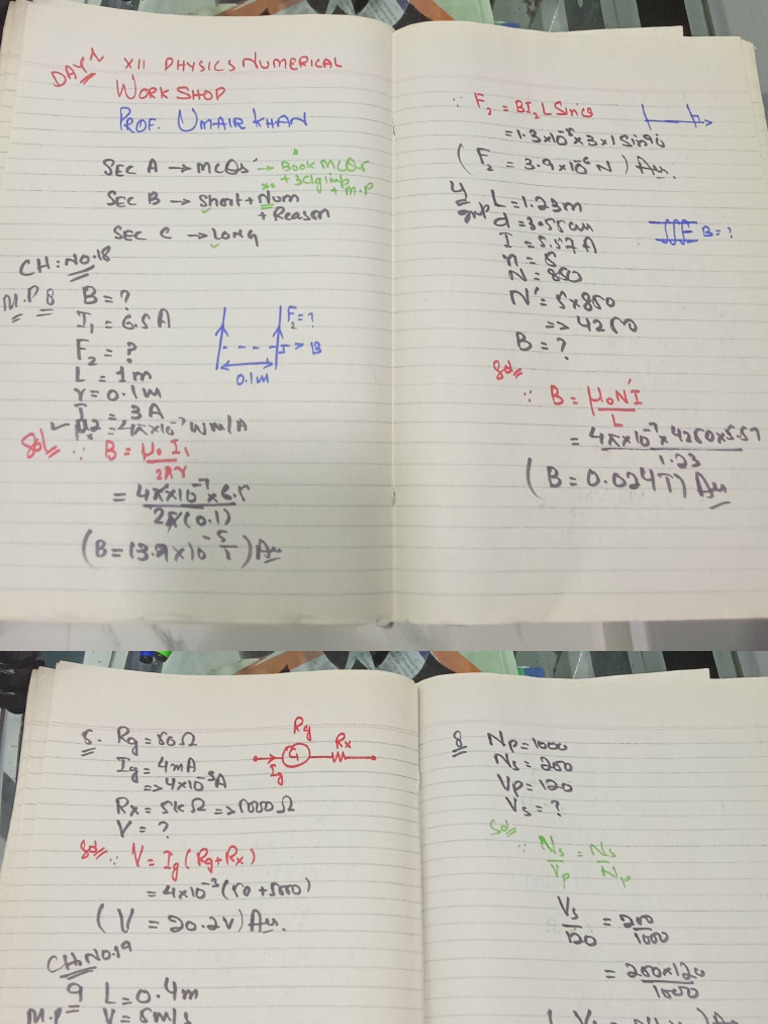 DAY 1
XII PHYSICS NUMERICAL
WORK SHOP
PROF. UMAIR KHAN
SEC A → MCQs → Book MCQs
+ 3Clg imp + M.P
SEC B → Short + Num
+ Reason
SEC C → LONG
CH: NO.18
M.P 8 B = ?
I₁ = 6.5 A
F₂ = ?
L = 1 m
r = 0.1 m
I₂ = 3 A
μ₀ = 4π×10⁻⁷ Wm/A
Sol ∵ B = μ₀ I₁
2πr
= 4π×10⁻⁷ × 6.5
2π(0.1)
(B = 13.9×10⁻⁵ T) An
F₂ = ?
I → B
0.1m
∵ F₂ = BI₂LSinθ
= 1.3×10⁻⁵×3×1Sin90
(F₂ = 3.9×10⁻⁶ N) An.
4 L = 1.23m
imp d = 3.55cm
I = 5.57 A
n = 5
N = 850
N' = 5×850
=> 4250
B = ?
B = ?
Sol
∵ B = μ₀N'I
L
= 4π×10⁻⁷×4250×5.57
1.23
(B = 0.024T) An
5. Rg = 50Ω
Ig = 4mA
=> 4×10⁻³A
Rx = 5kΩ => 5000Ω
V = ?
Rg
G
Rx
Ig
Sol ∵ V = Ig (Rg+Rx)
= 4×10⁻³(50+5000)
(V = 20.2V) An.
CH:NO.19
9 L = 0.4m
M.P V = 5m/s
8 Np = 1000
Ns = 200
Vp = 120
Vs = ?
Sol
∵ Ns = Ns
Vp Np
Vs = 200
120 1000
= 200×120
1000